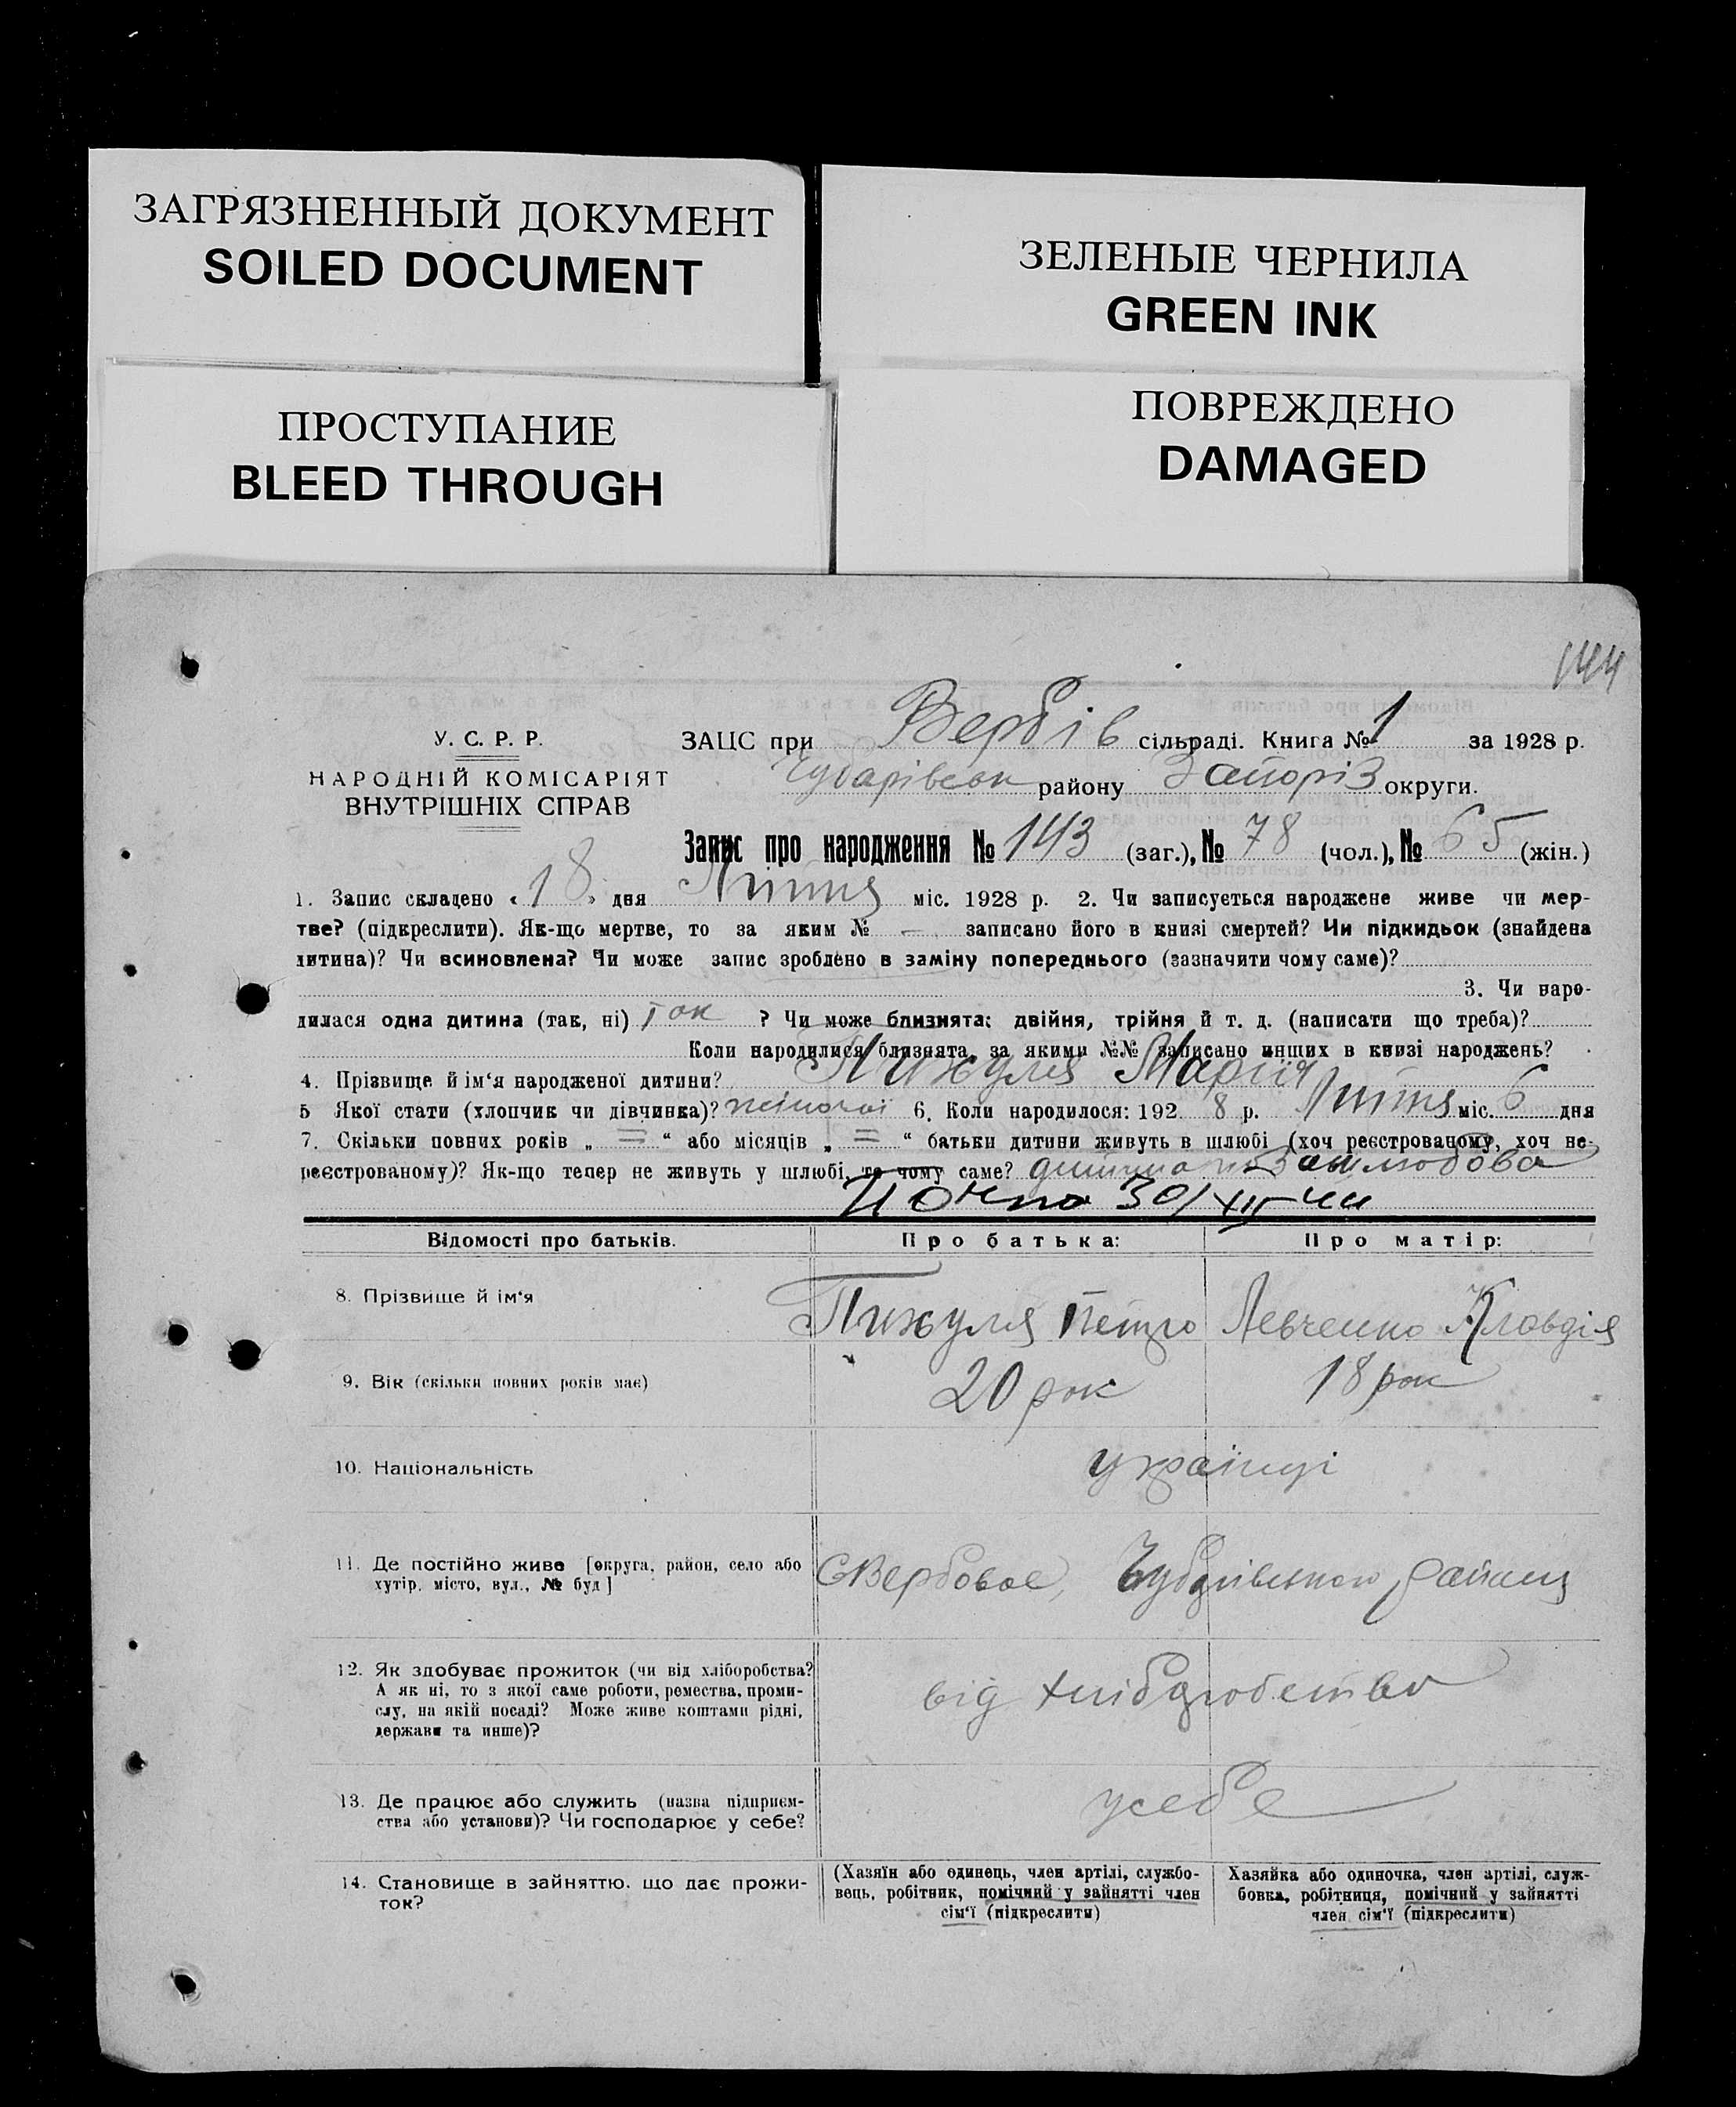 ЗАГРЯЗНЕННЫЙ ДОКУМЕНТ
SOILED DOCUMENT
ЗЕЛЕНЫЕ ЧЕРНИЛА
GREEN INK
ПРОСТУПАНИЕ
BLEED THROUGH
ПОВРЕЖДЕНО
DAMAGED
144
У. С. Р. Р.
НАРОДНІЙ КОМІСАРІЯТ
ВНУТРІШНІХ СПРАВ
ЗАЦС при Вербів сільраді. Книга № 1 за 1928 р.
Чубарівськ району Запоріз округи.
Запис про народження № 143 (заг.), № 78 (чол.), № 65 (жін.)
1. Запис складено « 18 » дня Липня міс. 1928 р. 2. Чи записується народжене живе чи мер-
тве? (підкреслити). Як-що мертве, то за яким № — записано його в книзі смертей? Чи підкидьок (знайдена
дитина)? Чи всиновлена? Чи може запис зроблено в заміну попереднього (зазначити чому саме)?
3. Чи наро-
дилася одна дитина (так, ні) Так ? Чи може близнята: двійня, трійня й т. д. (написати що треба)?
Коли народилися близнята, за якими №№ записано инших в книзі народжень?
4. Прізвище й ім'я народженої дитини? Пижуля Марія
5 Якої стати (хлопчик чи дівчинка)? жіночої 6. Коли народилося: 192 8 р. Липня міс. 6 дня
7. Скільки повних років „ = “ або місяців „ = “ батьки дитини живуть в шлюбі (хоч реєстрованому, хоч не-
реєстрованому)? Як-що тепер не живуть у шлюбі, то чому саме? дитина позашлюбова
30/XII
Відомості про батьків.
Про батька:
Про матір:
8. Прізвище й ім'я
Пижуля Петро
Левченко Клавдія
9. Вік (скільки повних років має)
20 рок
18 рок
10. Національність
українці
11. Де постійно живе [округа, район, село або
хутір, місто, вул., № буд]
с Вербовое, Чубарівського району
12. Як здобуває прожиток (чи від хліборобства?
А як ні, то з якої саме роботи, ремества, проми-
слу, на якій посаді? Може живе коштами рідні,
держави та инше)?
від хліборобства
13. Де працює або служить (назва підприєм-
ства або установи)? Чи господарює у себе?
у себе
14. Становище в зайняттю, що дає прожи-
ток?
(Хазяїн або одинець, член артілі, службо-
вець, робітник, помічний у зайнятті член
сім'ї (підкреслити)
Хазяйка або одиночка, член артілі, служ-
бовка, робітниця, помічний у зайнятті
член сім'ї (підкреслити)